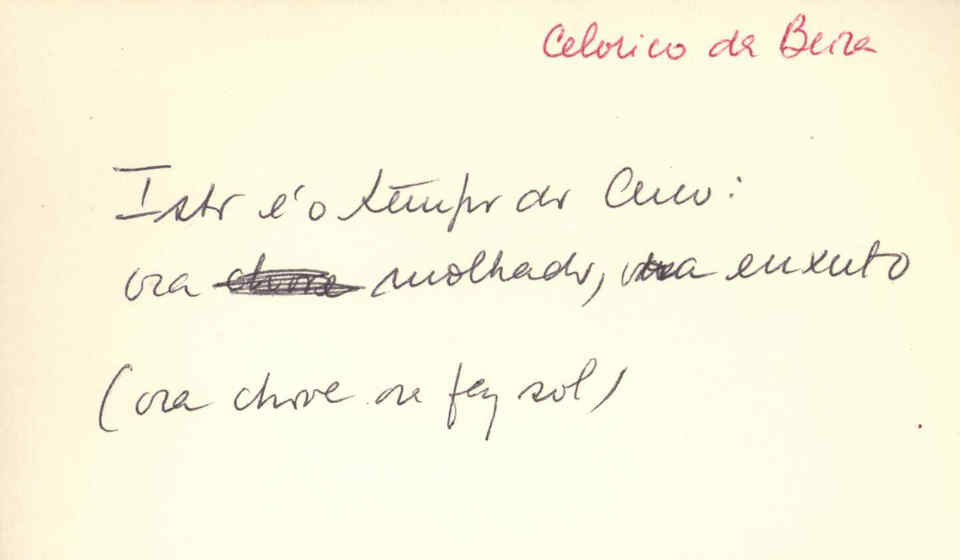 Celorico da Beira
Isto é o tempo do Cuco:
ora chove molhado, ora enxuto
(ora chove ora faz sol)